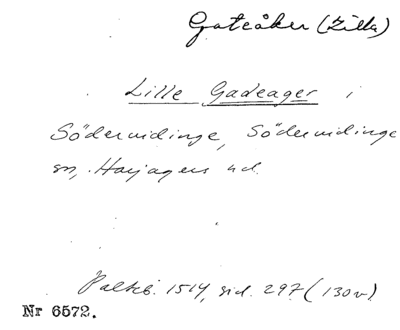 Gateåker (Lilla)
Lille Gadeager i
Södervidinge, Södervidinge
sn, Harjagers hd.
Palteb. 1514, sid. 297 (130v)
Nr 6572.